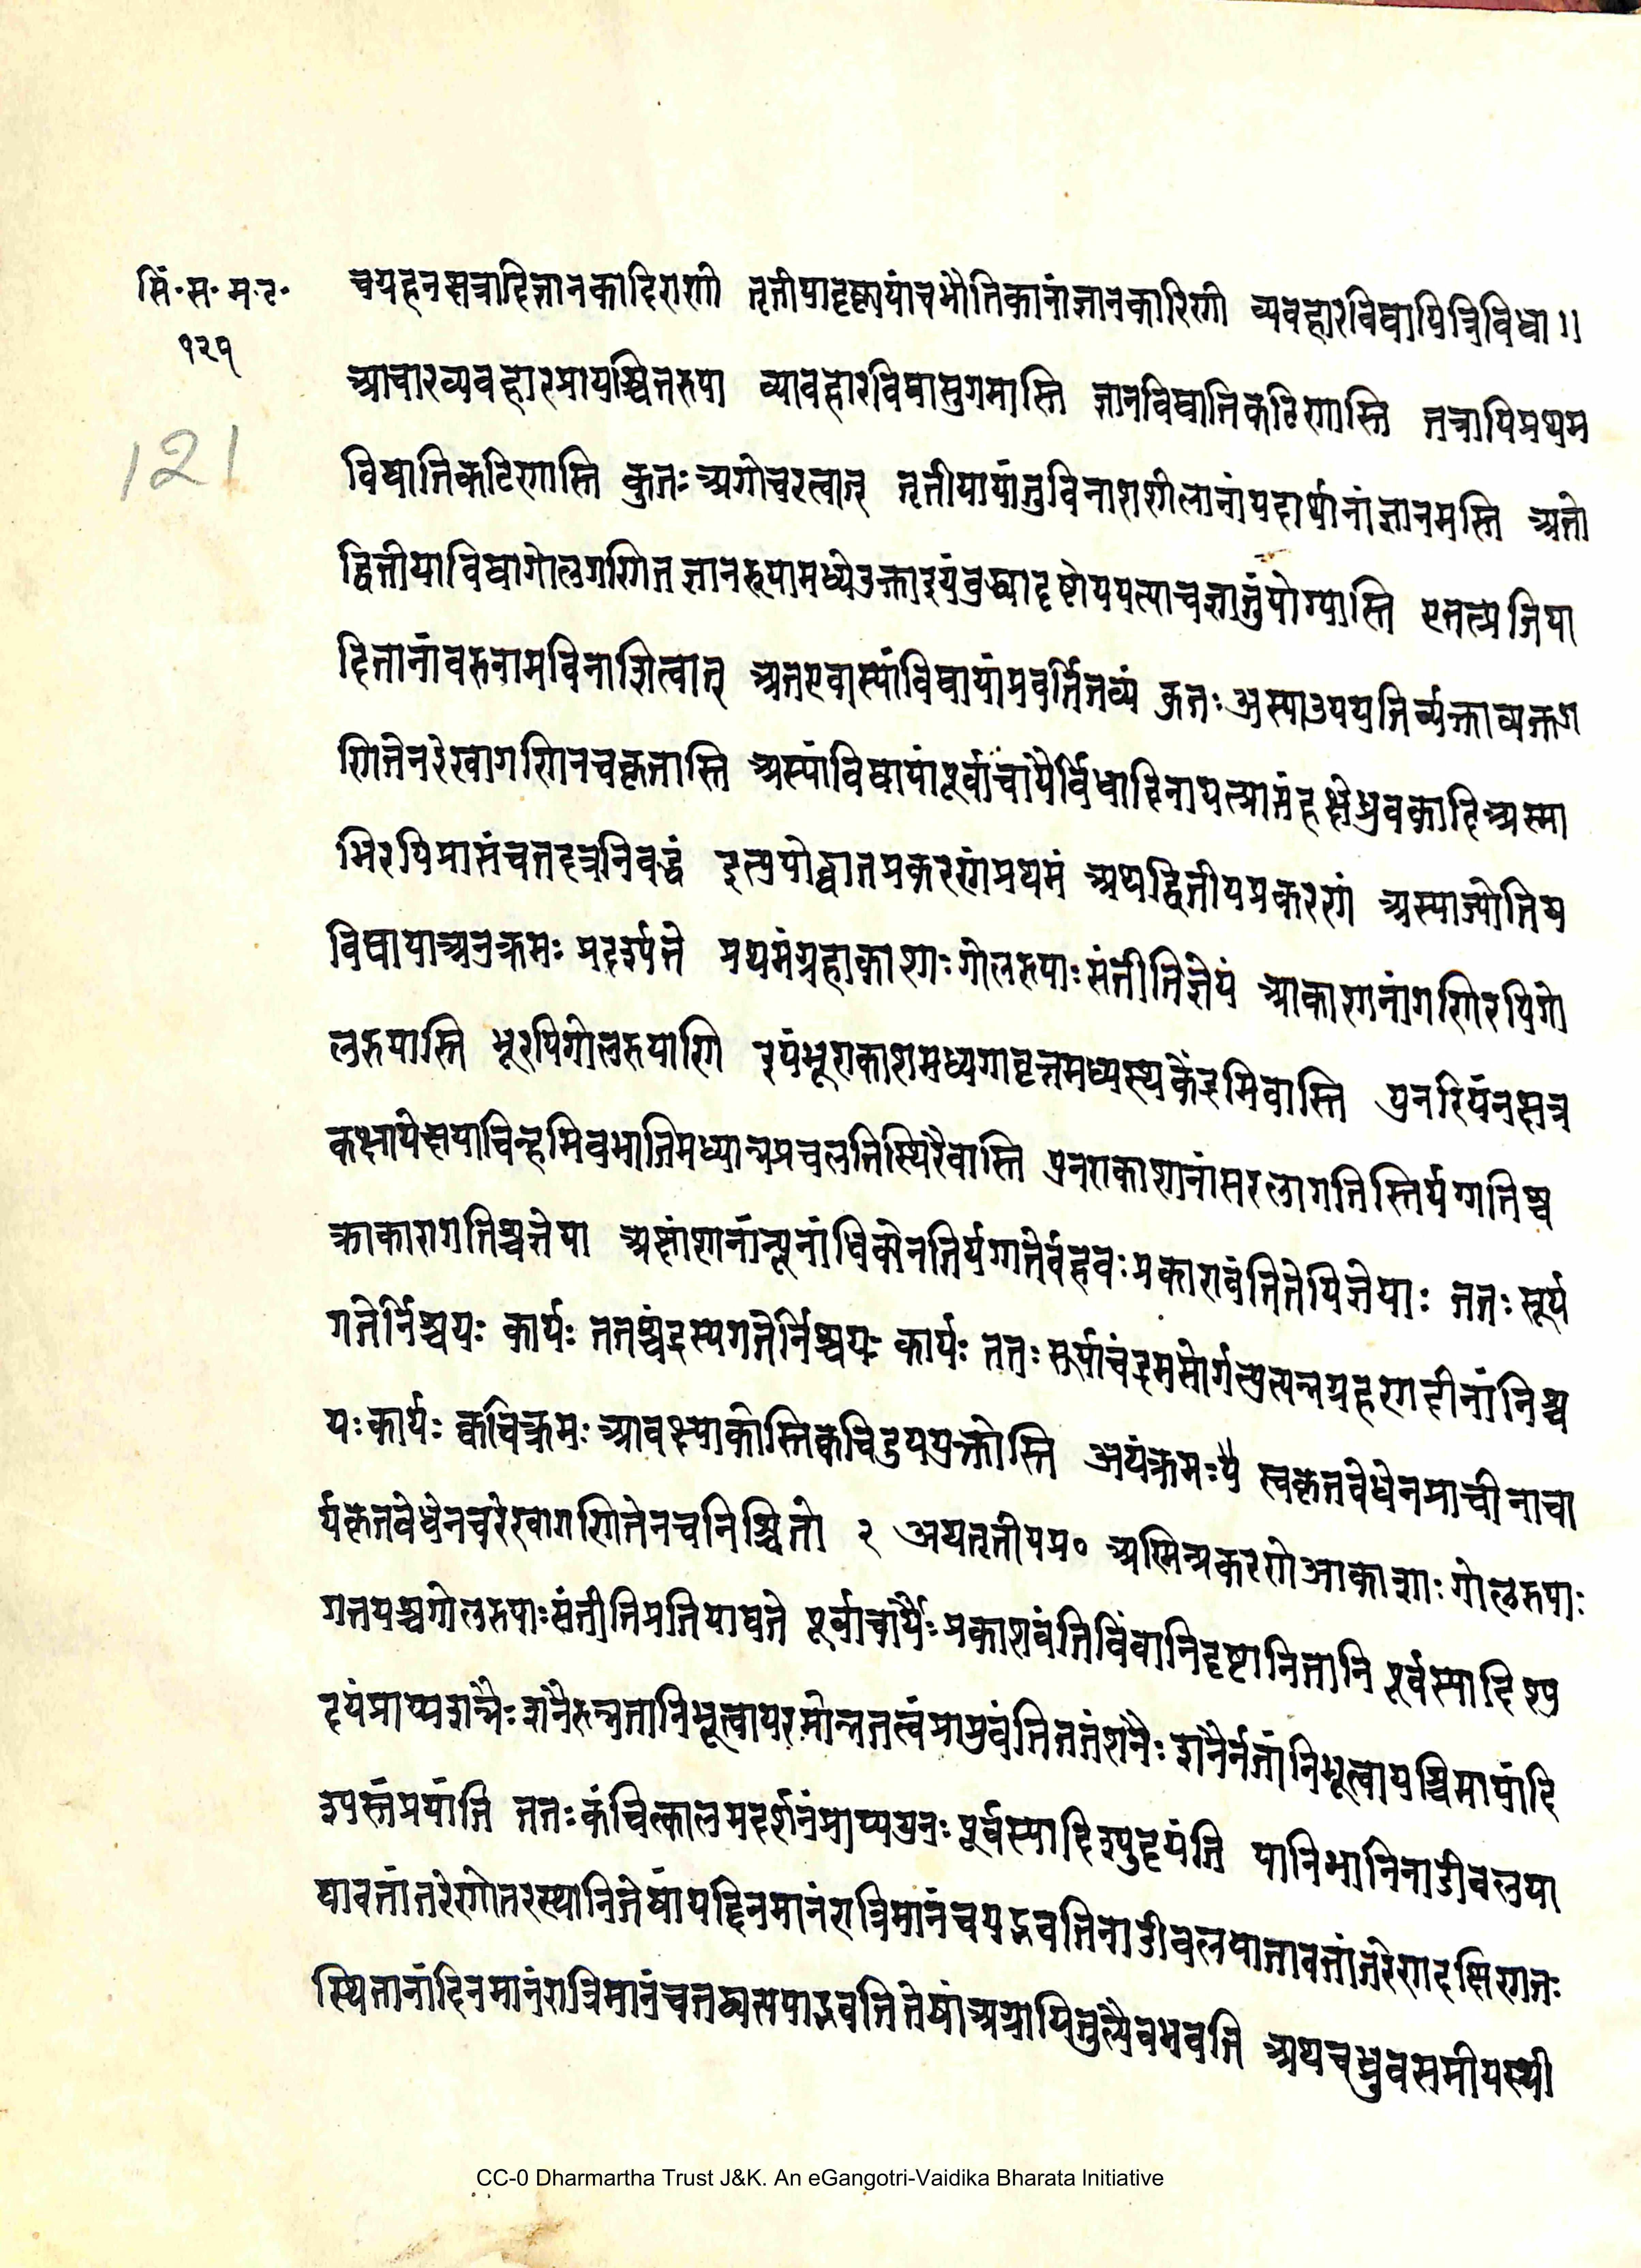 सिं॰स॰म॰र॰
१२१
121
चयहनक्षत्रादिज्ञानकादिराणी तृतीयादृष्टायांचभौतिकानांज्ञानकारिणी व्यवहारविद्यापित्रिविधा॥
आचारव्यवहारप्रायश्चितरुपा व्यावहारविद्यासुगमास्ति ज्ञानविद्यातिकठिणास्ति तत्रापिप्रथम
विद्यातिकठिणास्ति कुतःअगोचरत्वात् तृतीयायांतुविनाशशीलानांपदार्थानांज्ञानमस्ति अतो
द्वितीयाविद्यागोलगणितज्ञानरूपामध्येउक्ताइयंबुद्ध्यादृष्टोपपत्याचज्ञातुंयोग्यास्ति एतत्प्रतिपा
दितानांवरुनामविनाशित्वात् अतएवास्यांविद्यायांप्रवर्तितव्यं कुतःअस्याउपपतिर्व्यक्ताव्यक्तग
णितेनरेखागणितेनचकृतास्ति अस्यांविद्यायांपूर्वाचार्यैर्वेधादिनायत्प्राप्तंदृक्षेध्रुवकादिअस्मा
भिरपिप्राप्तंचतदत्रनिबद्धं इत्युपोद्घातप्रकरणंप्रथमं अथद्वितीयप्रकरणं अस्याज्योतिष
विद्यायाअनुक्रमः प्रदर्श्यते प्रथमंग्रहाकाशाःगोलरुपाःसंतीतिज्ञेयं आकाशानांगणिरपिगो
लरुपास्ति भूरपिगोलरुपाणि इयंभूराकाशमध्यगावृत्तमध्यस्थकेंद्रमिवास्ति पुनरियंनक्षत्र
कक्षापेक्षयाचिन्हमिवभातिमध्यान्नप्रचलतिस्थिरैवास्ति पुनराकाशानांसरलागतिस्तिर्यग्गतिश्च
क्राकारागतिश्चज्ञेया अक्षांशानांन्यूनांधिकोनतिर्यग्गतेर्वहवःप्रकाराभवंतितेपिज्ञेयाः ततःसूर्य
गतेर्निश्चयः कार्यः ततश्चंद्रस्यगतेर्निश्चयः कार्यः ततः सूर्याचंद्रमसोर्गत्युत्पन्नग्रहणादीनांनिश्च
यःकार्यः क्वचित्क्रमः आवश्यकोस्तिक्वचिदुपयुक्तोस्ति अयंक्रमः स्वकृतवेधेनप्राचीनाचा
र्यकृतवेधेनचरेखागणितेनचनिश्चितो २ अथतृतीयप्र॰ अस्मिन्प्रकरणेआकाशाःगोलरुपाः
गतयश्चगोलरुपाःसंतीतिप्रतिपाद्यते पूर्वाचार्यैःप्रकाशवंतिबिंबानिदृष्टानितानि पूर्वस्यांदिश्यु
दयंप्राप्यशनैःशनैरुन्नतानिभूत्वापरमोन्नतत्वंप्राप्नुवंतिततंशनैःशनैर्नतानिभूत्वापश्चिमायांदि
श्यस्तंप्रयांति ततःकंचित्कालमदर्शनंप्राप्यपुनःपूर्वस्यांदिश्युदयंति यानिभानिनाडीवलया
द्यावतांतरेणोतरस्थानितेषांयद्दिनमानंरात्रिमानंचयद्भवतिनाडीवलयात्तावतांतरेणदक्षिणतः
स्थितानांदिनमानंरात्रिमानंचतद्व्यत्ययाद्भवतितेषांअग्रापितुल्यैवभवति अथचध्रुवसमीपस्थी
CC-0 Dharmartha Trust J&K. An eGangotri-Vaidika Bharata Initiative